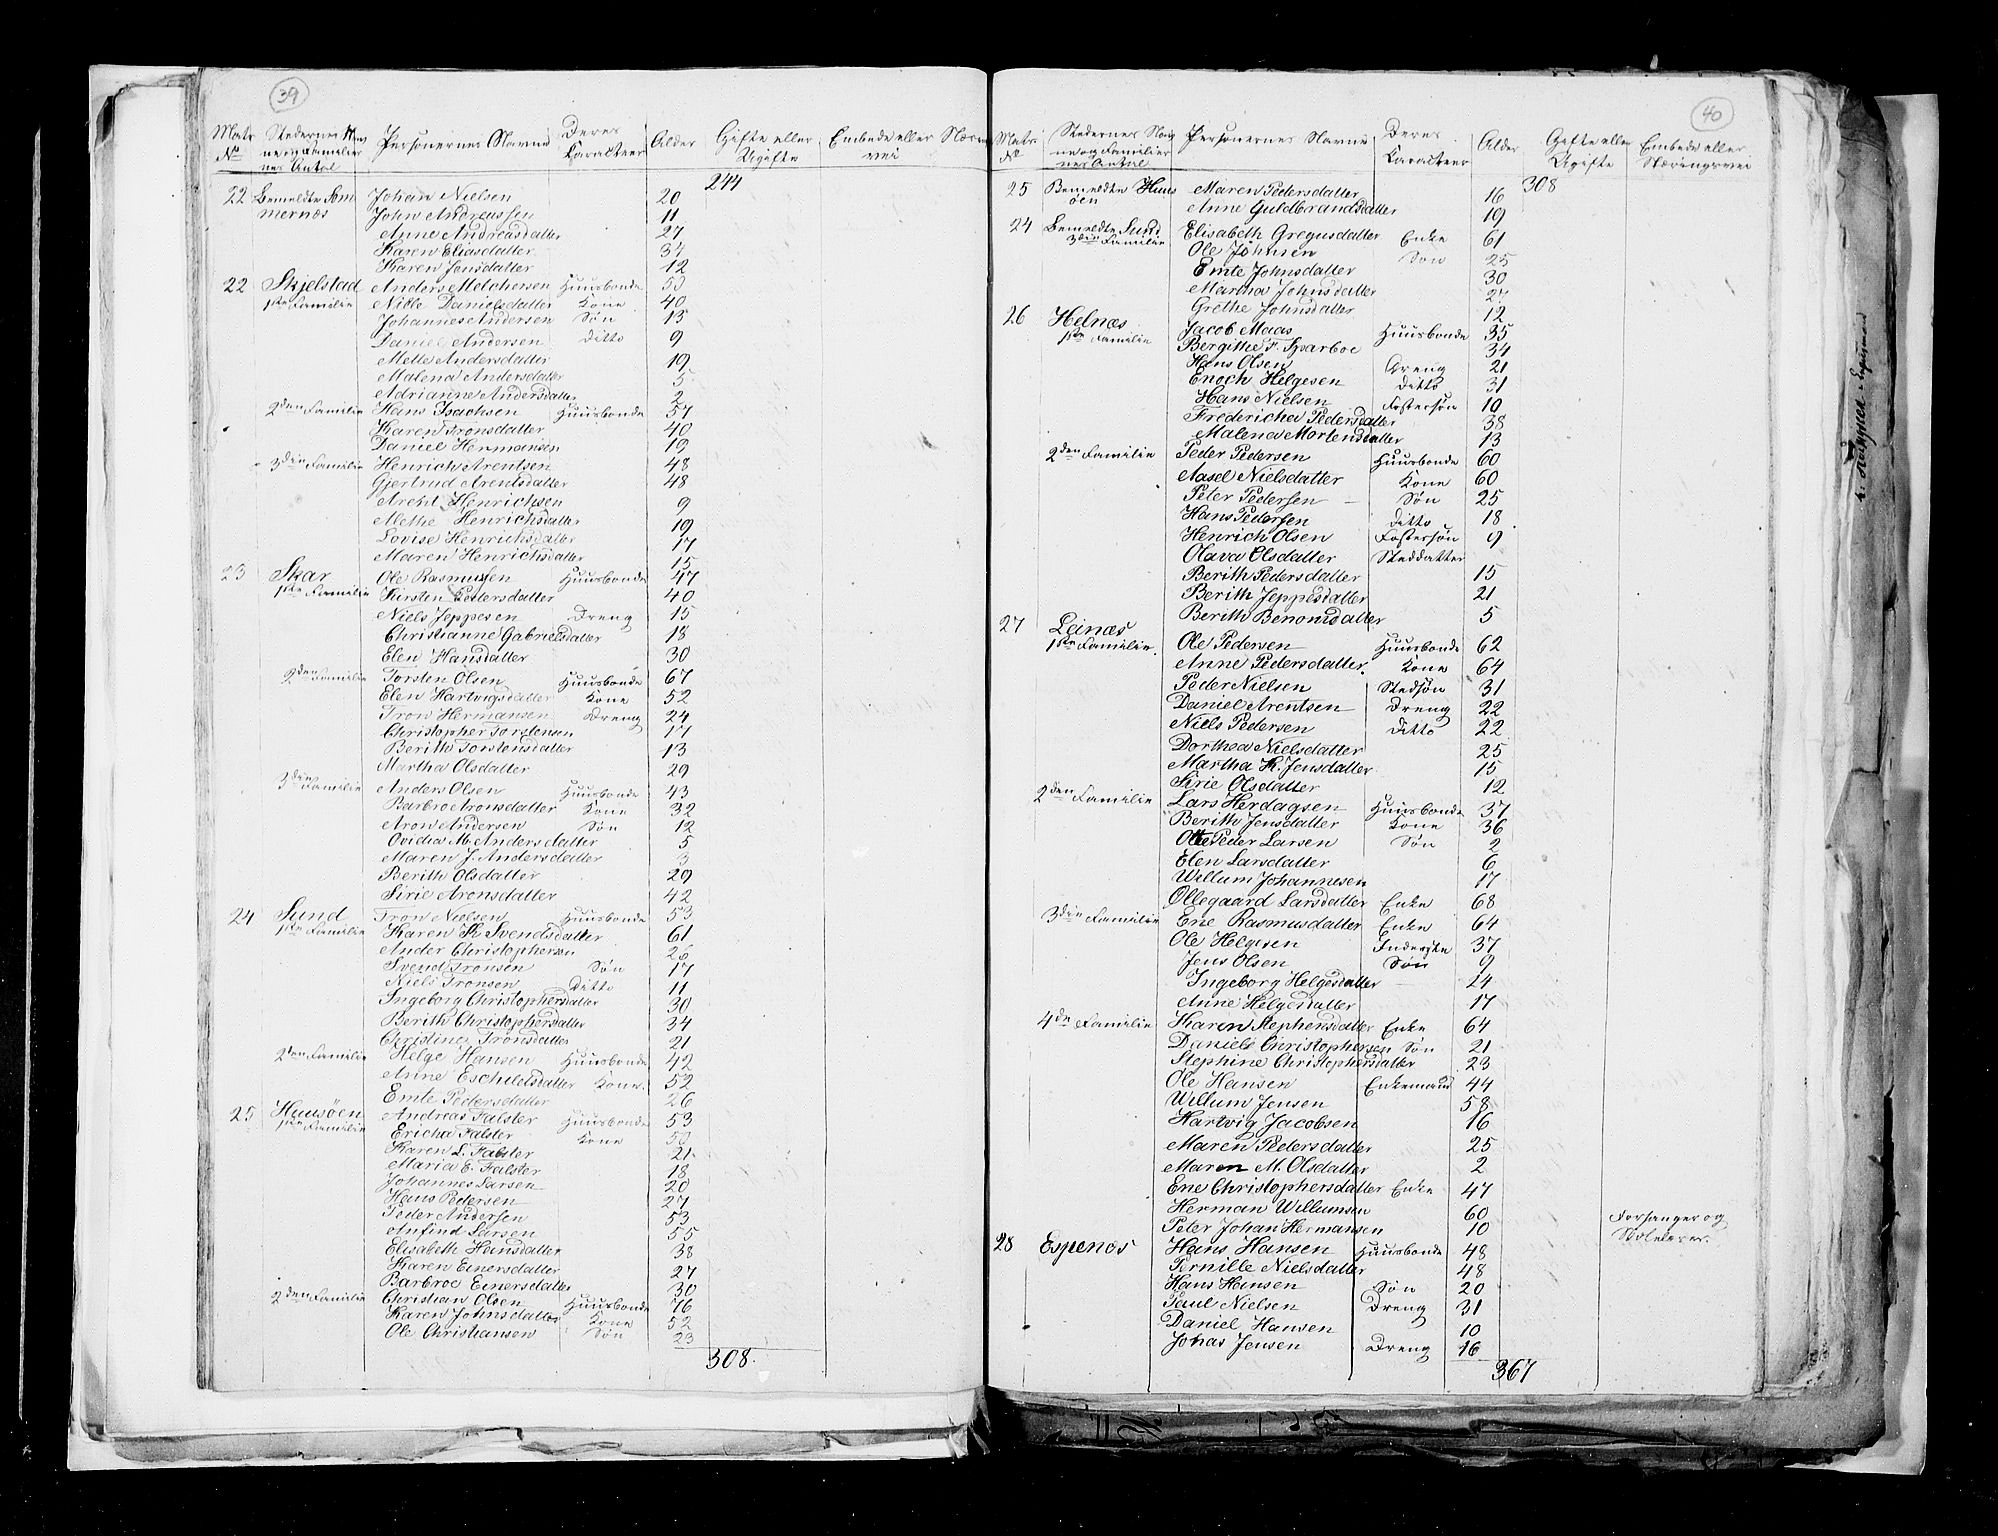 39
Matr No Stedernes Navne og Familiernes Antal Personernes Navne Deres Karacteer Alder Gifte eller Ugifte Embede eller Næringsvei
244
22 Bemeldte Sommernæs Johan Nielsen 20
John Andreassen 11
Anne Andreasdatter 27
Karen Eliasdatter 34
Karen Jensdatter 12
22 Skjelstad Anders Melchersen Huusbonde 53
1ste Familie Nille Danielsdatter Kone 40
Johannes Andersen Søn 13
Daniel Andersen Ditto 9
Mette Andersdatter 19
Malena Andersdatter 5
Adrianne Andersdatter 2
2den Familie Hans Isachsen Huusbonde 57
Karen Tronsdatter 40
Daniel Hermansen 19
3den Familie Henrich Arentsen 48
Gjertrud Arentsdatter 48
Arent Henrichsen 9
Methe Henrichsdatter 19
Lovise Henrichsdatter 17
Maren Henrichsdatter 15
23 Skar Ole Rasmussen Huusbonde 47
1ste Familie Kirsten Pedersdatter 40
Niels Jeppesen Dreng 15
Christianne Gabrielsdatter 18
Elen Hansdatter 30
2den Familie Torsten Olsen Huusbonde 67
Elen Hartvigsdatter Kone 52
Tron Hermansen Dreng 24
Christopher Torstensen 17
Berith Torstensdatter 13
Martha Olsdatter 29
3den Familie Anders Olsen Huusbonde 43
Barbro Aronsdatter Kone 32
Aron Andersen Søn 12
Ovidia M. Andersdatter 5
Maren J. Andersdatter 3
Berith Olsdatter 29
Sirie Aronsdatter 42
24 Sund Tron Nielsen Huusbonde 53
1ste Familie Karen K Svendsdatter 61
Ander Christophersen 26
Svend Tronsen Søn 17
Niels Tronsen Ditto 11
Ingeborg Christophersdatter 30
Berith Christophersdatter 34
Christine Tronsdatter 21
2den Familie Helge Hansen Huusbonde 42
Anne Eschildsdatter Kone. 52
Emte Pedersdatter 26
25 Huusøen Andreas Falster Huusbonde 53
1ste Familie Ericha Falster Kone 50
Karen L. Falster 21
Maria E. Falster 18
Johannes Larsen 20
Hans Pedersen 27
Peder Andersen 53
Anfind Larsen 55
Elisabeth Hansdatter 38
Karen Einersdatter 27
Barbroe Einersdatter 30
2den Familie Christian Olsen Huusbonde 76
Karen Johnsdatter Kone 52
Ole Christiansen Søn 23
308.
40
Matr No Stedernes Navne og Familiernes Antal Personernes Navne Deres Karacteer Alder Gifte eller Ugifte Embede eller Næringsvei
308
25 Bemeldte Huusøen Maren Pedersdatter 16
Anne Guldbrandsdatter 19
24 Bemeldte Sund Elisabeth Gregusdatter Enke 61
3die Familie Ole Johnsen Søn 25
Emte Johnsdatter 30
Martha Johnsdatter 27
Grethe Johnsdatter 12
26 Helnæs Jacob Maas Huusbonde 35
1ste Familie Bergithe F. Sparboe 34
Hans Olsen Dreng 21
Enoch Helgesen Ditto 31
Hans Nielsen Fostersøn 10
Fredericha Pedersdatter 38
Malena Mortensdatter 13
2den Familie Peder Pedersen Huusbonde 60
Aasel Nielsdatter Kone 60
Peter Pedersen Søn 25
Hans Pedersen Ditto 18
Henrich Olsen Fostersøn 9
Olava Olsdatter Steddatter
Berith Pedersdatter 15
Berith Jeppesdatter 21
Berith Benonisdatter 5
27 Leinæs Ole Pedersen Huusbonde 62
1ste Familie. Anne Pedersdatter. Kone 64
Peder Nielsen Stedsøn 31
Daniel Arentsen Dreng 22
Niels Pedersen Ditto 22
Dorthea Nielsdatter 25
Martha K. Jensdatter 15
Sirie Olsdatter 12
2den Familie Lars Herdagsen Huusbonde 37
Berith Jensdatter Kone 36
Otte Peder Larsen Søn 2
Elen Larsdatter 6
Willum Johannesen 17
Ollegaard Larsdatter Enke 68
3die Familie Ene Rasmusdatter Enke 64
Ole Helgesen Inderste 37
Jens Olsen Søn 9
Ingeborg Helgesdatter 24
Anne Helgesdatter 17
4de Familie Karen Stephensdatter Enke 64
Daniels Christophersen Søn 21
Stephine Christophersdatter 23
Ole Hansen Enkemand 44
Willum Jensen 58
Hartvig Jacobsen 16
Maren Pedersdatter 25
Maren M. Olsdatter 2
Ene Christophersdatter Enke 47
Herman Willumsen 60 Forsanger og
Peter Johan Hermansen 10 Skolelærer.
28 Espenæs Hans Hansen Huusbonde 48
Pernille Nielsdatter 48
Hans Hansen Søn 20
Paul Nielsen Dreng 31
Daniel Hansen 10
Johas Jensen Dreng 16
367